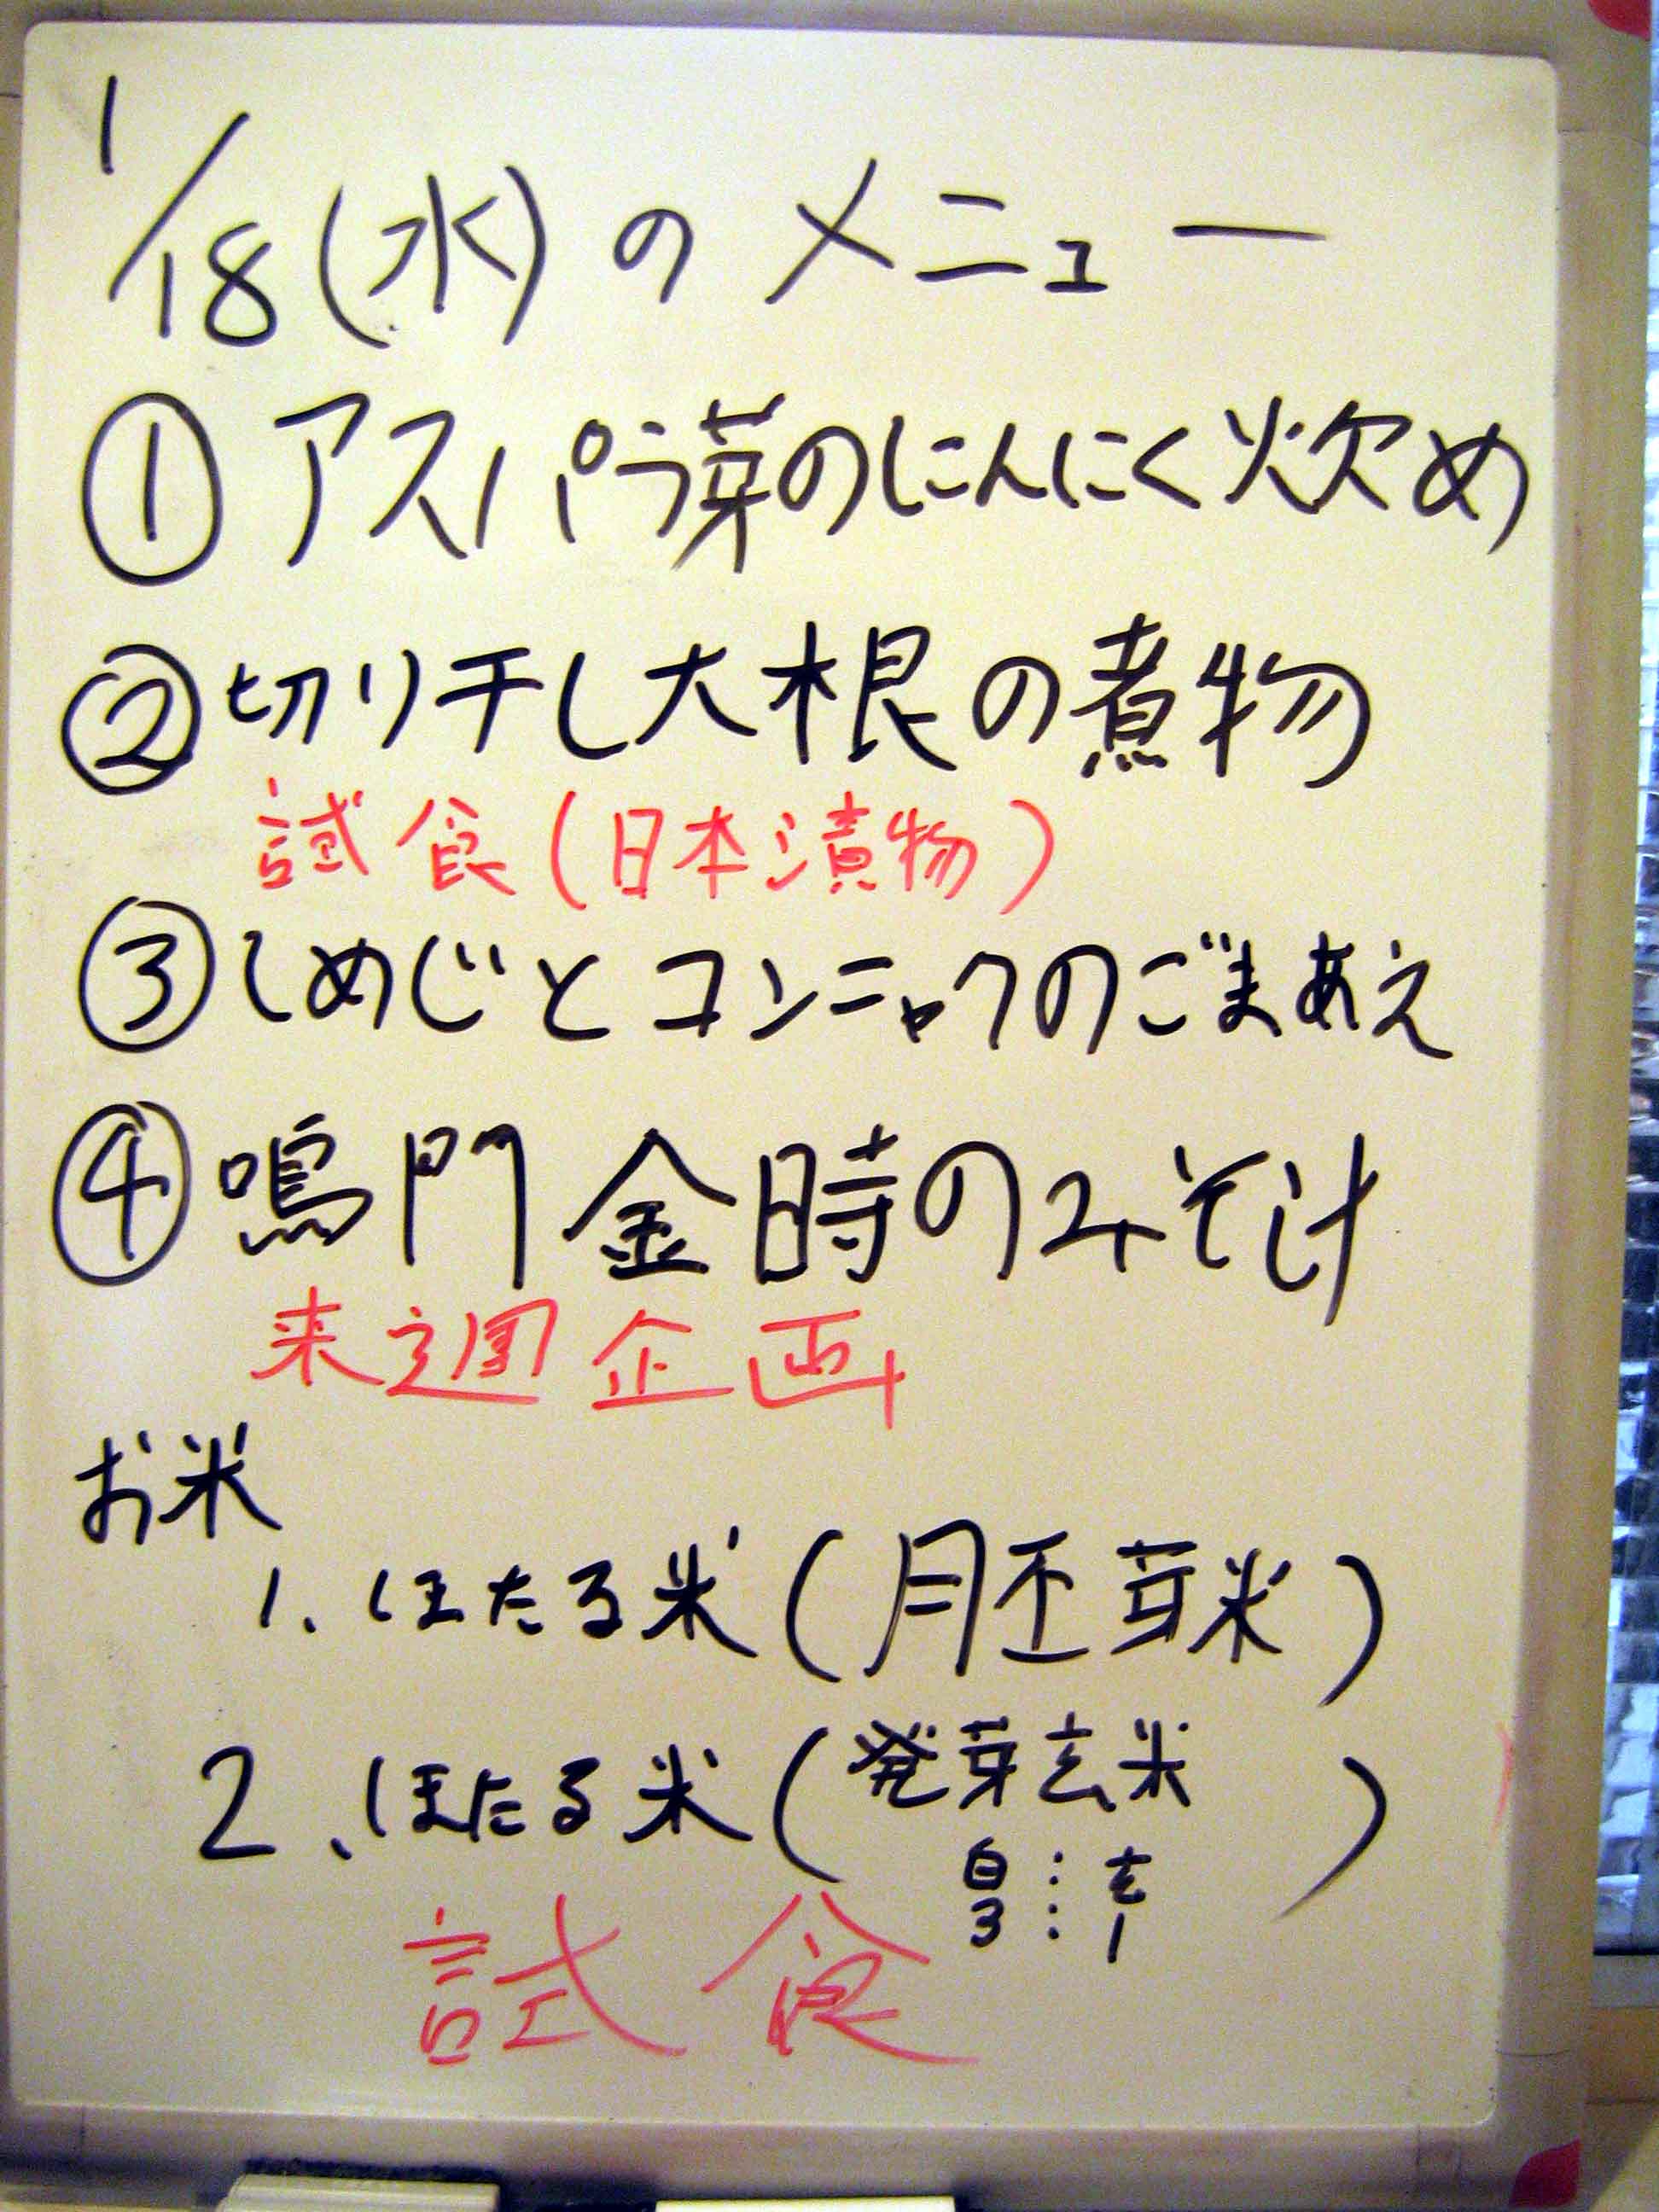 1/18(水)のメニュー
①アスパラ芽のにんにく炊め
②切り干し大根の煮物
試食(日本漬物)
③しめじとコンニャクのごまあえ
④鳴門金時のみそ汁
来週企画
お米
1、ほたる米(胚芽米)
2、ほたる米(発芽玄米
白:玄
3:1)
試食